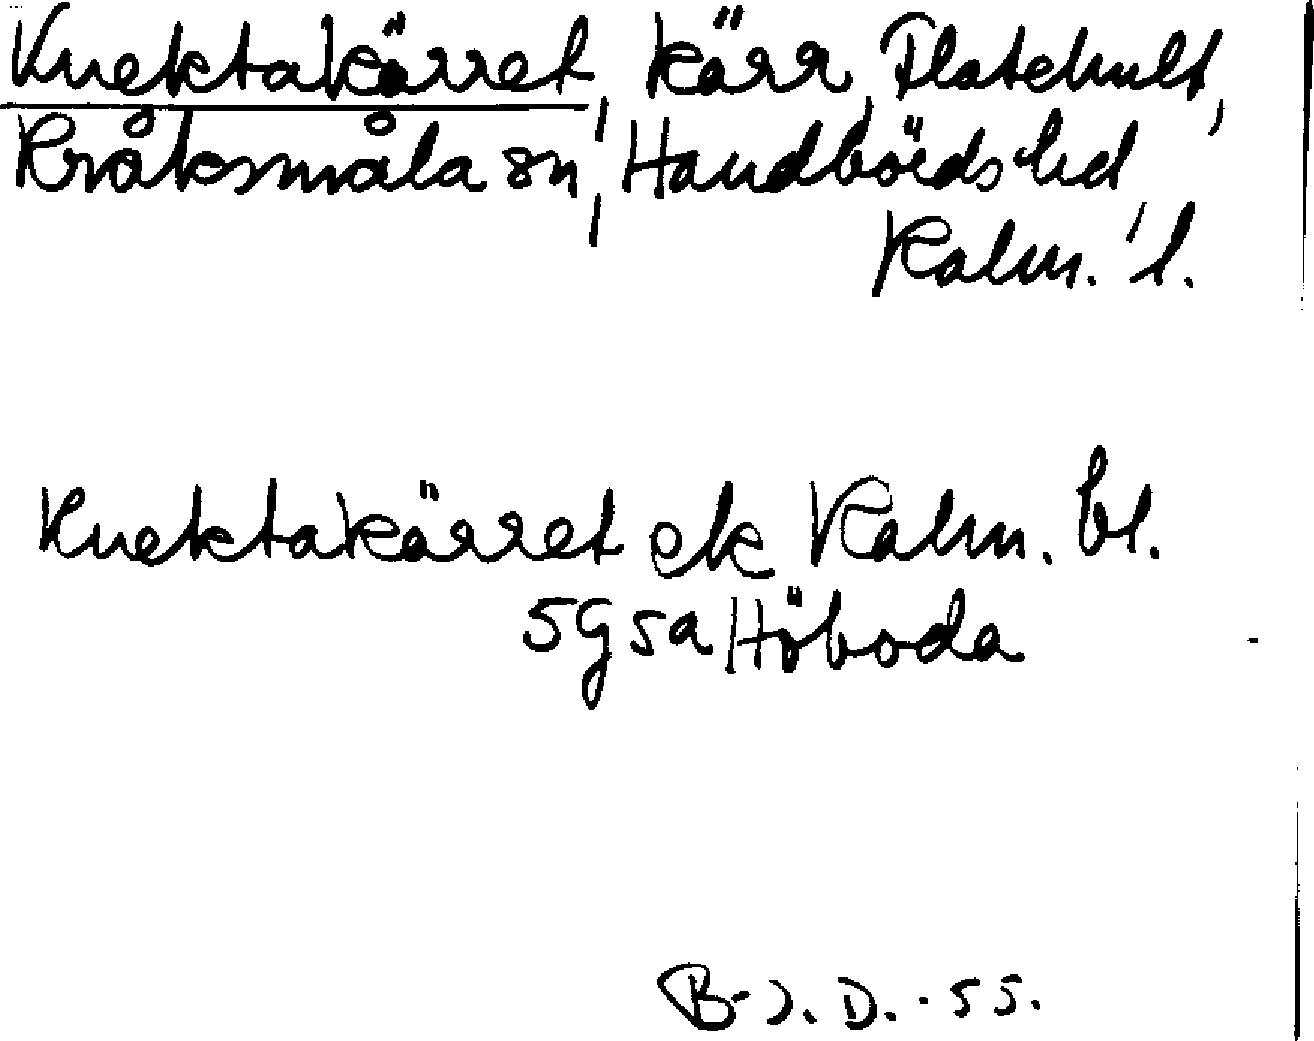 Knektakärret, kärr, Flatehult,
Kråksmåla sn, Handbörds hd,
Kalm. l.
Knektakärret ek Kalm. bl.
5G5a Höboda
B-J. D. -55.